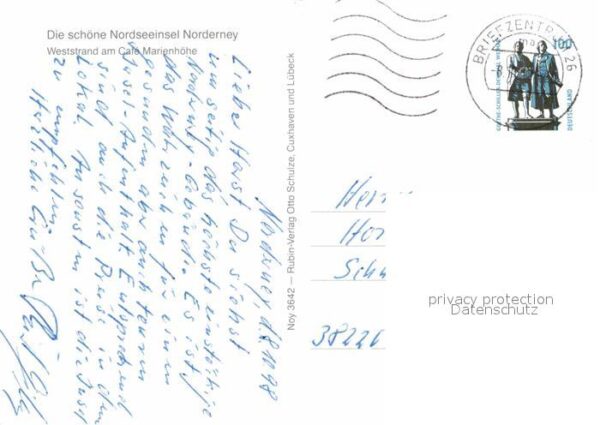 Die schöne Nordseeinsel Norderney
Weststrand am Café Marienhöhe
Norderney d. 8.10.98
Lieber Horst Du siehst
umseitig das höchste einstöckige
Norderney-Gebäude. Es ist
das Wahrzeichen für einen
gesunden aber auch teuren
Insel-Aufenthalt. Entsprechend
sind auch die Preise in dem
Lokal. Ansonsten ist die Insel
zu empfehlen
Herzliche Grüße
Noy 3642 – Rubin-Verlag Otto Schulze, Cuxhaven und Lübeck
BRIEFZENTRUM 26
100
GOETHE-SCHILLER-DENKMAL WEIMAR
DEUTSCHLAND
Herr
Hor
Schu
38226
privacy protection
Datenschutz